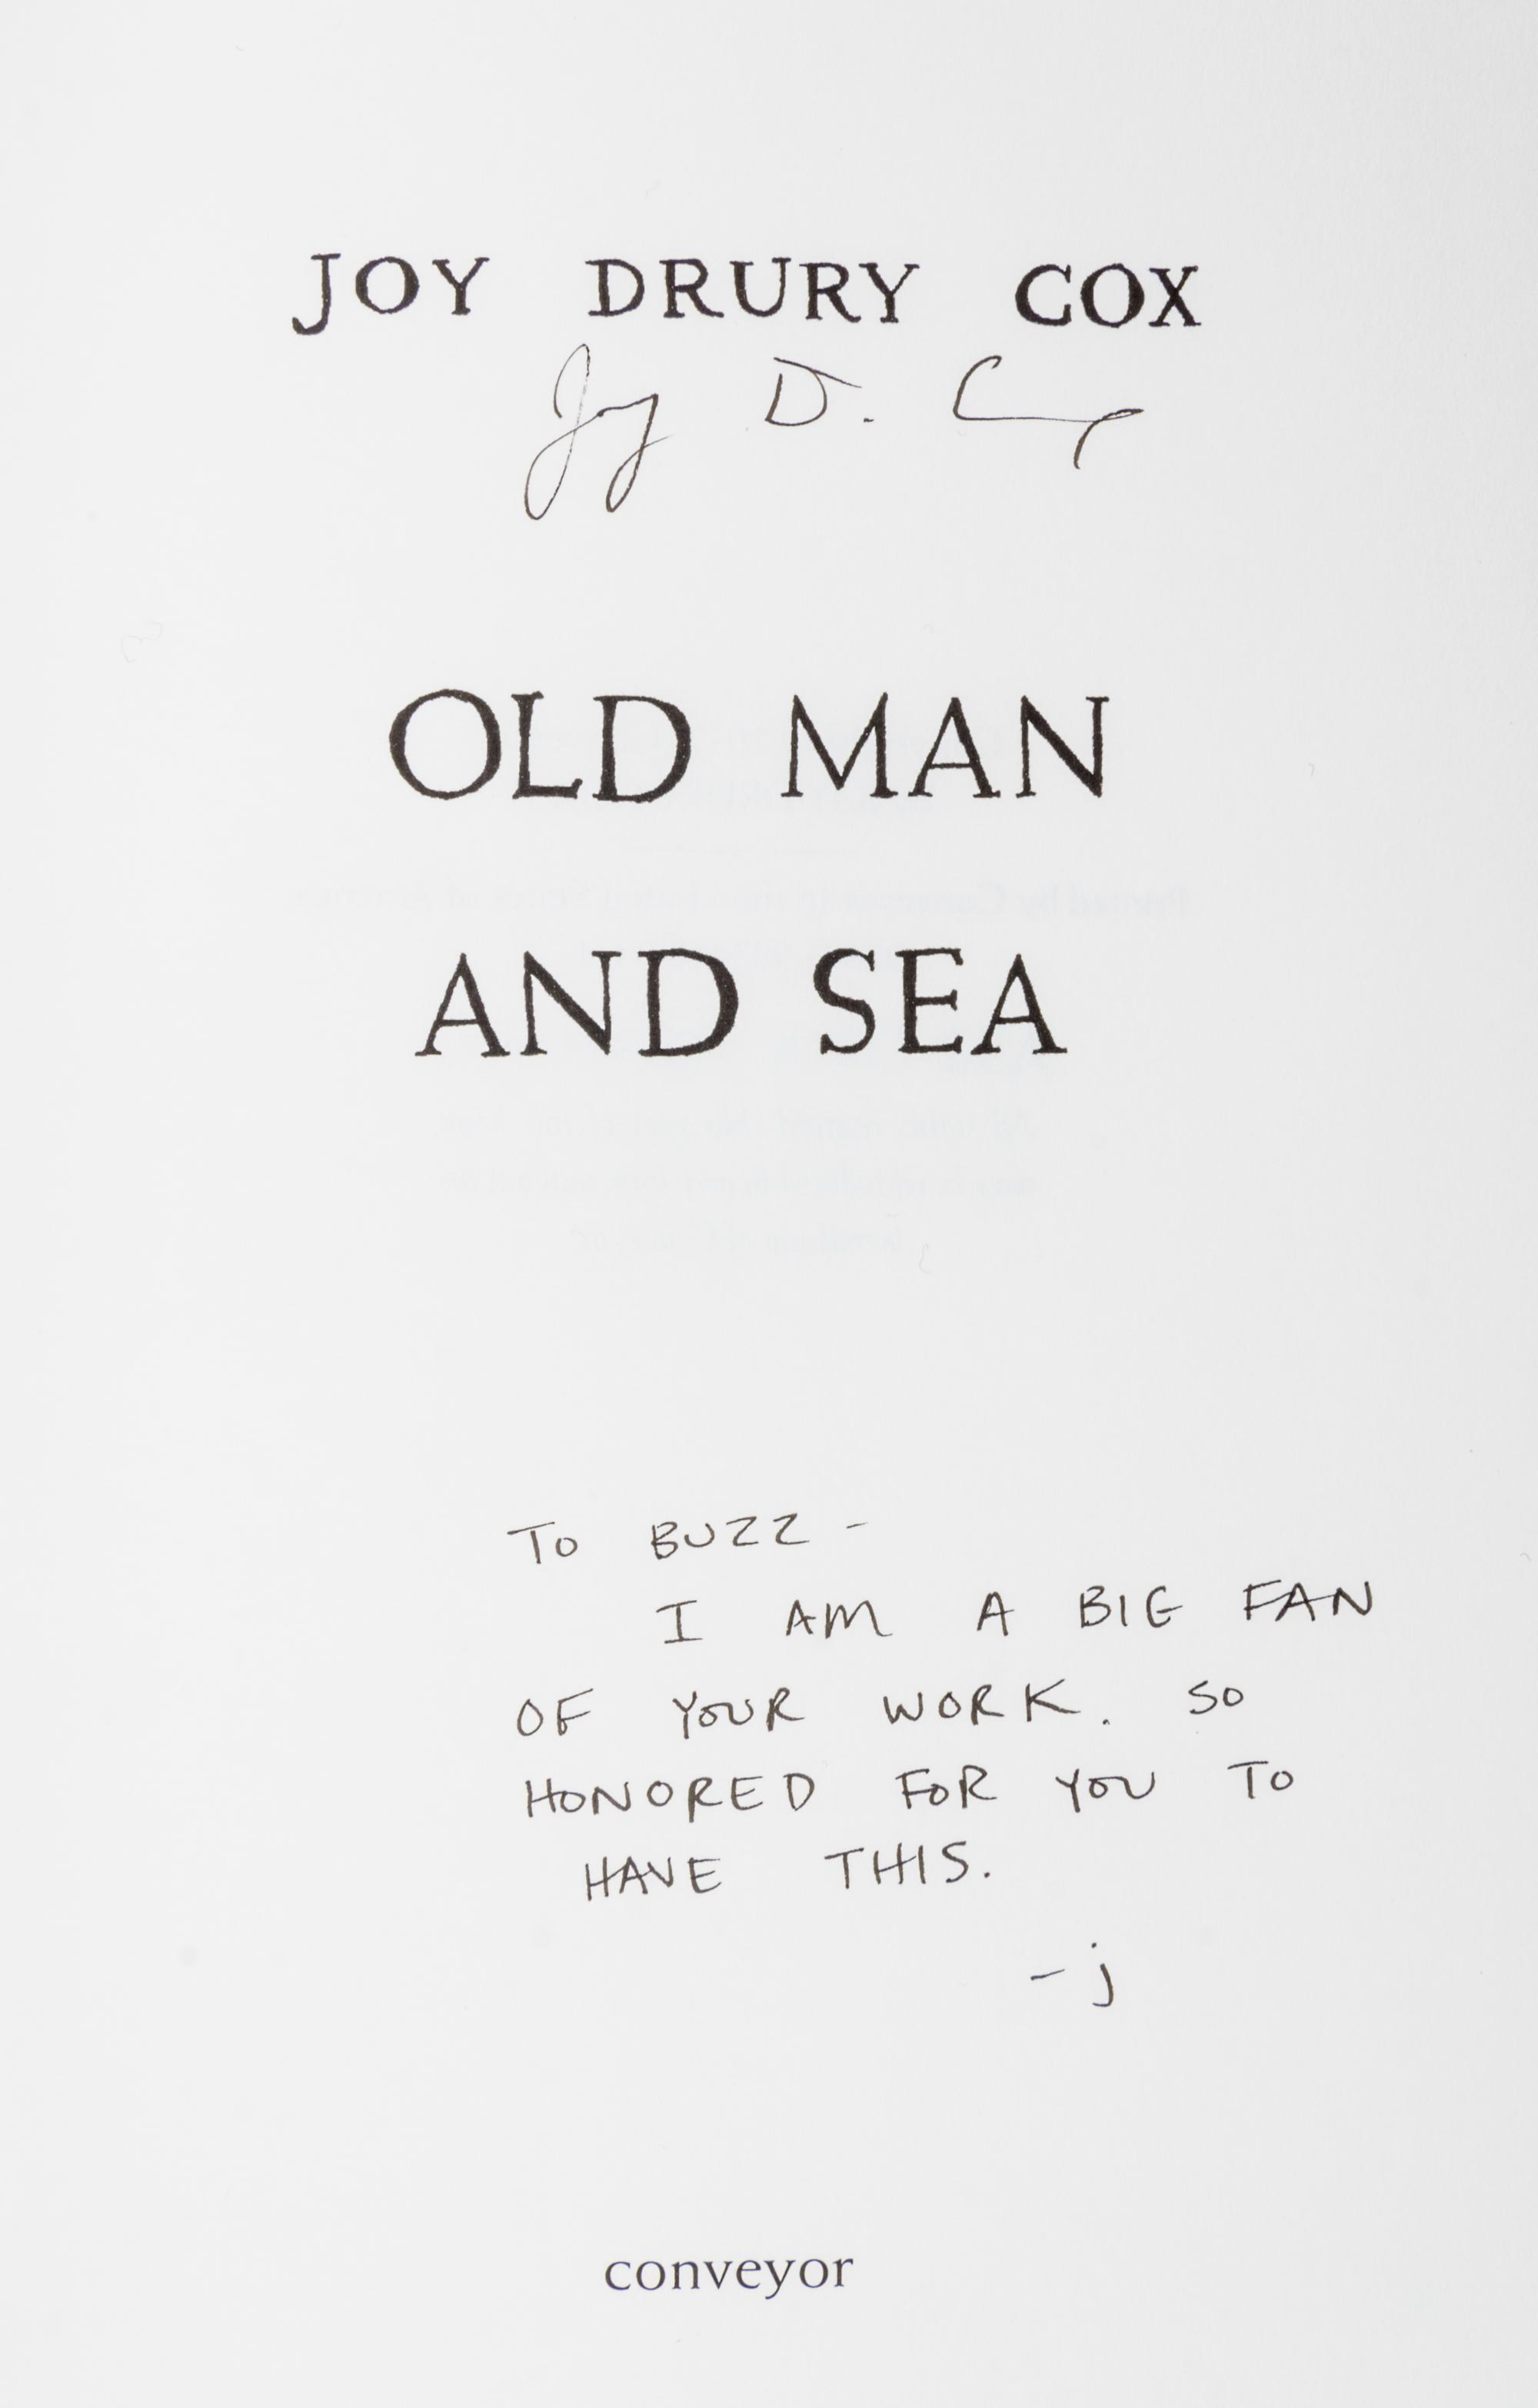 JOY DRURY COX
Joy D. Cox
OLD MAN
AND SEA
TO BUZZ -
I AM A BIG FAN
OF YOUR WORK. SO
HONORED FOR YOU TO
HAVE THIS.
- j
conveyor